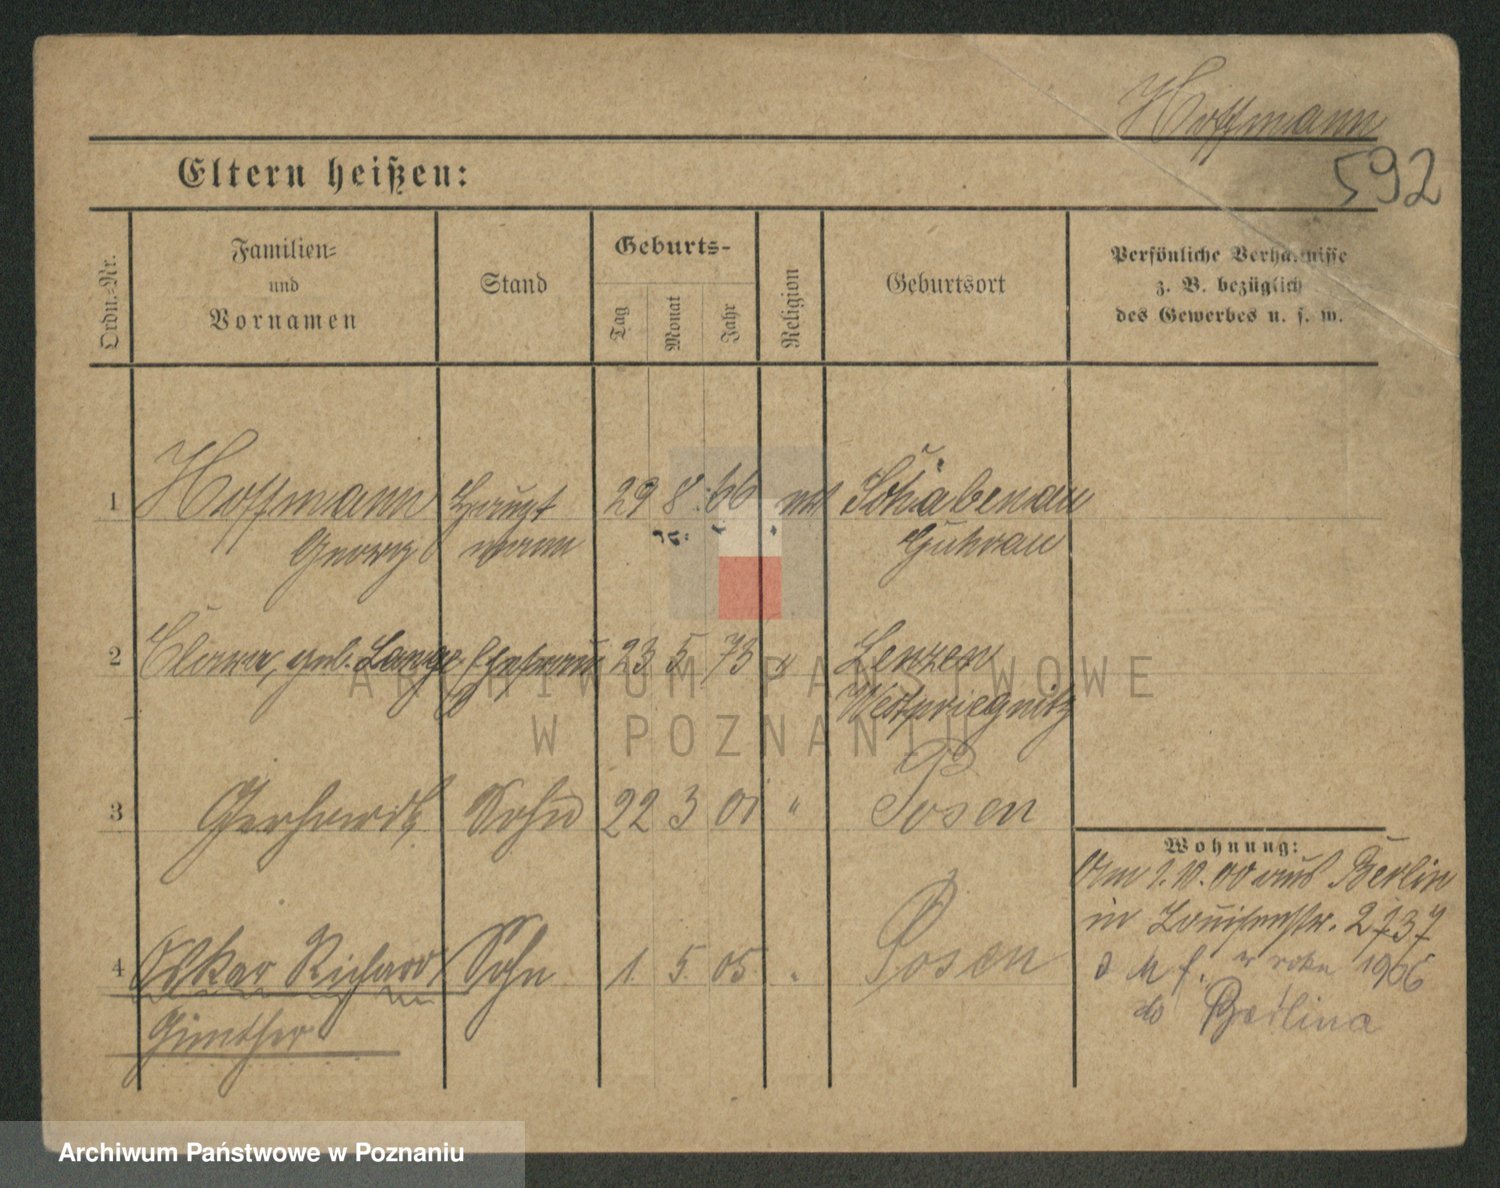 Hoffmann
592
Eltern heißen:
Ordn.-Nr.
Familien-
und
Vornamen
Stand
Geburts-
Tag
Monat
Jahr
Religion
Geburtsort
Persönliche Verhältnisse
z. B. bezüglich
des Gewerbes u. s. w.
1 Hoffmann Haupt 29 8. 66 Schabenau
Georg mann Guhrau
2 Clara, geb. Lange Ehefrau 23 5. 73 " Lenzen
Westpriegnitz
3 Gerhardt Sohn 22 3 01 " Posen
Wohnung:
Am 1.10.00 aus Berlin
in Louisenstr.
4 Oskar Richard Sohn 1. 5. 05. " Posen
w roku 1906
Günther
do Berlina
ARCHIWUM PAŃSTWOWE
W POZNANIU
Archiwum Państwowe w Poznaniu